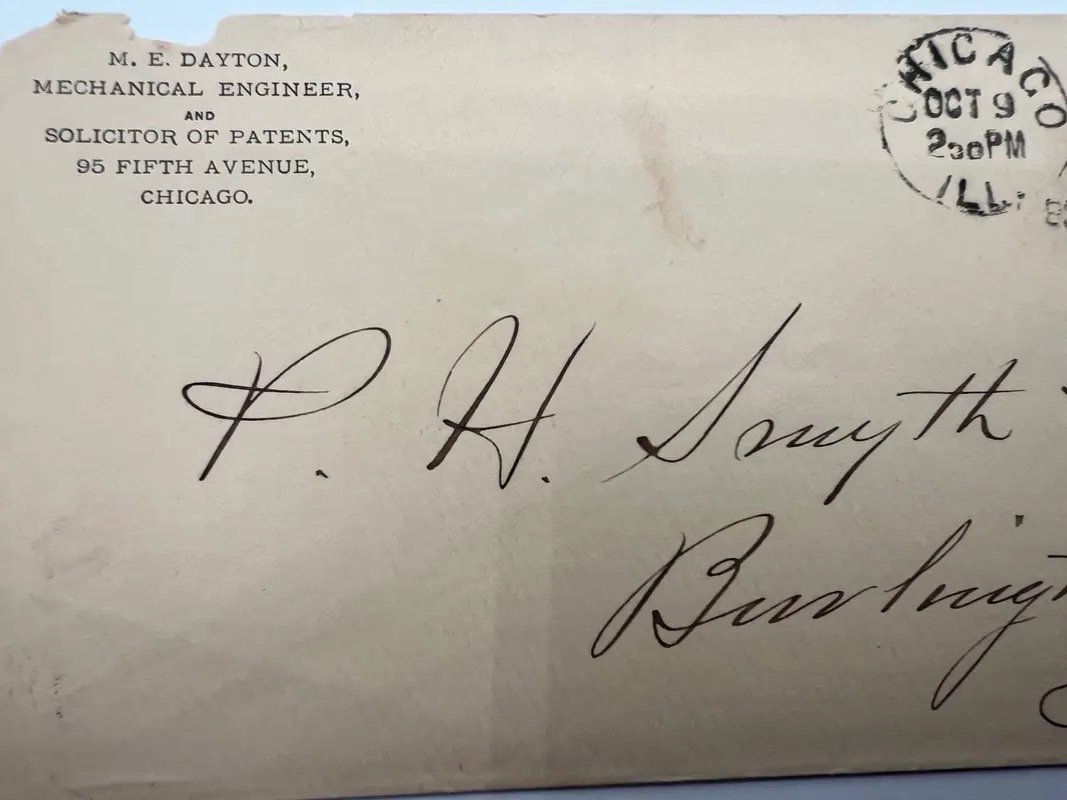 M. E. DAYTON,
MECHANICAL ENGINEER,
AND
SOLICITOR OF PATENTS,
95 FIFTH AVENUE,
CHICAGO.
CHICAGO
OCT 9
230PM
ILL.
P. H. Smyth